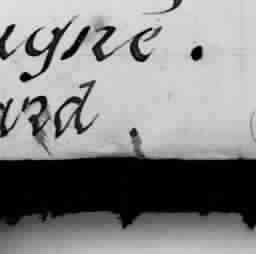 ugné.
ard.